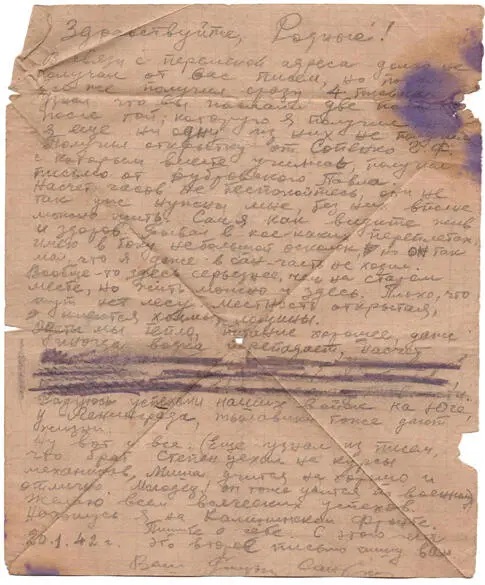 Здравствуйте, Родные!
В связи с переменой адреса долго не
получал от Вас писем, но
все же получил сразу 4 письма.
Узнал что вы послали две
после той, которую я получил
я еще ни одну из них не
Получил открытку от
с которым вместе учились, получил
письмо от Дубровского Павла.
Насчет часов не беспокойтесь, они не
так уж нужны мне без них вполне
можно жить. Сам я как видите жив
и здоров. Бывал в кое-каких переплетах,
имею в боку небольшой осколок, но он так
мал, что я даже в сан-часть не ходил.
Вообще-то здесь серьезнее, чем на старом
месте, но жить можно и здесь. Плохо, что
тут нет лесу местность открытая,
имеются холмы лощины.
Одеты мы тепло, питание хорошее, даже
иногда водка перепадает, насчет
Радуюсь успехами наших войск на Юге,
у Ленинграда, тоже дают
жизни.
Ну вот и все. (Еще узнал из писем,
что брат Степен уехал на курсы
механиков, Миша учится на хорошо и
отлично молодец, он тоже учится
Желаю всем всяческих успехов.
Нахожусь я на Калининском фронте.
Пишите о себе. С этого
20.1.42 г. это второе письмо пишу вам
Ваш